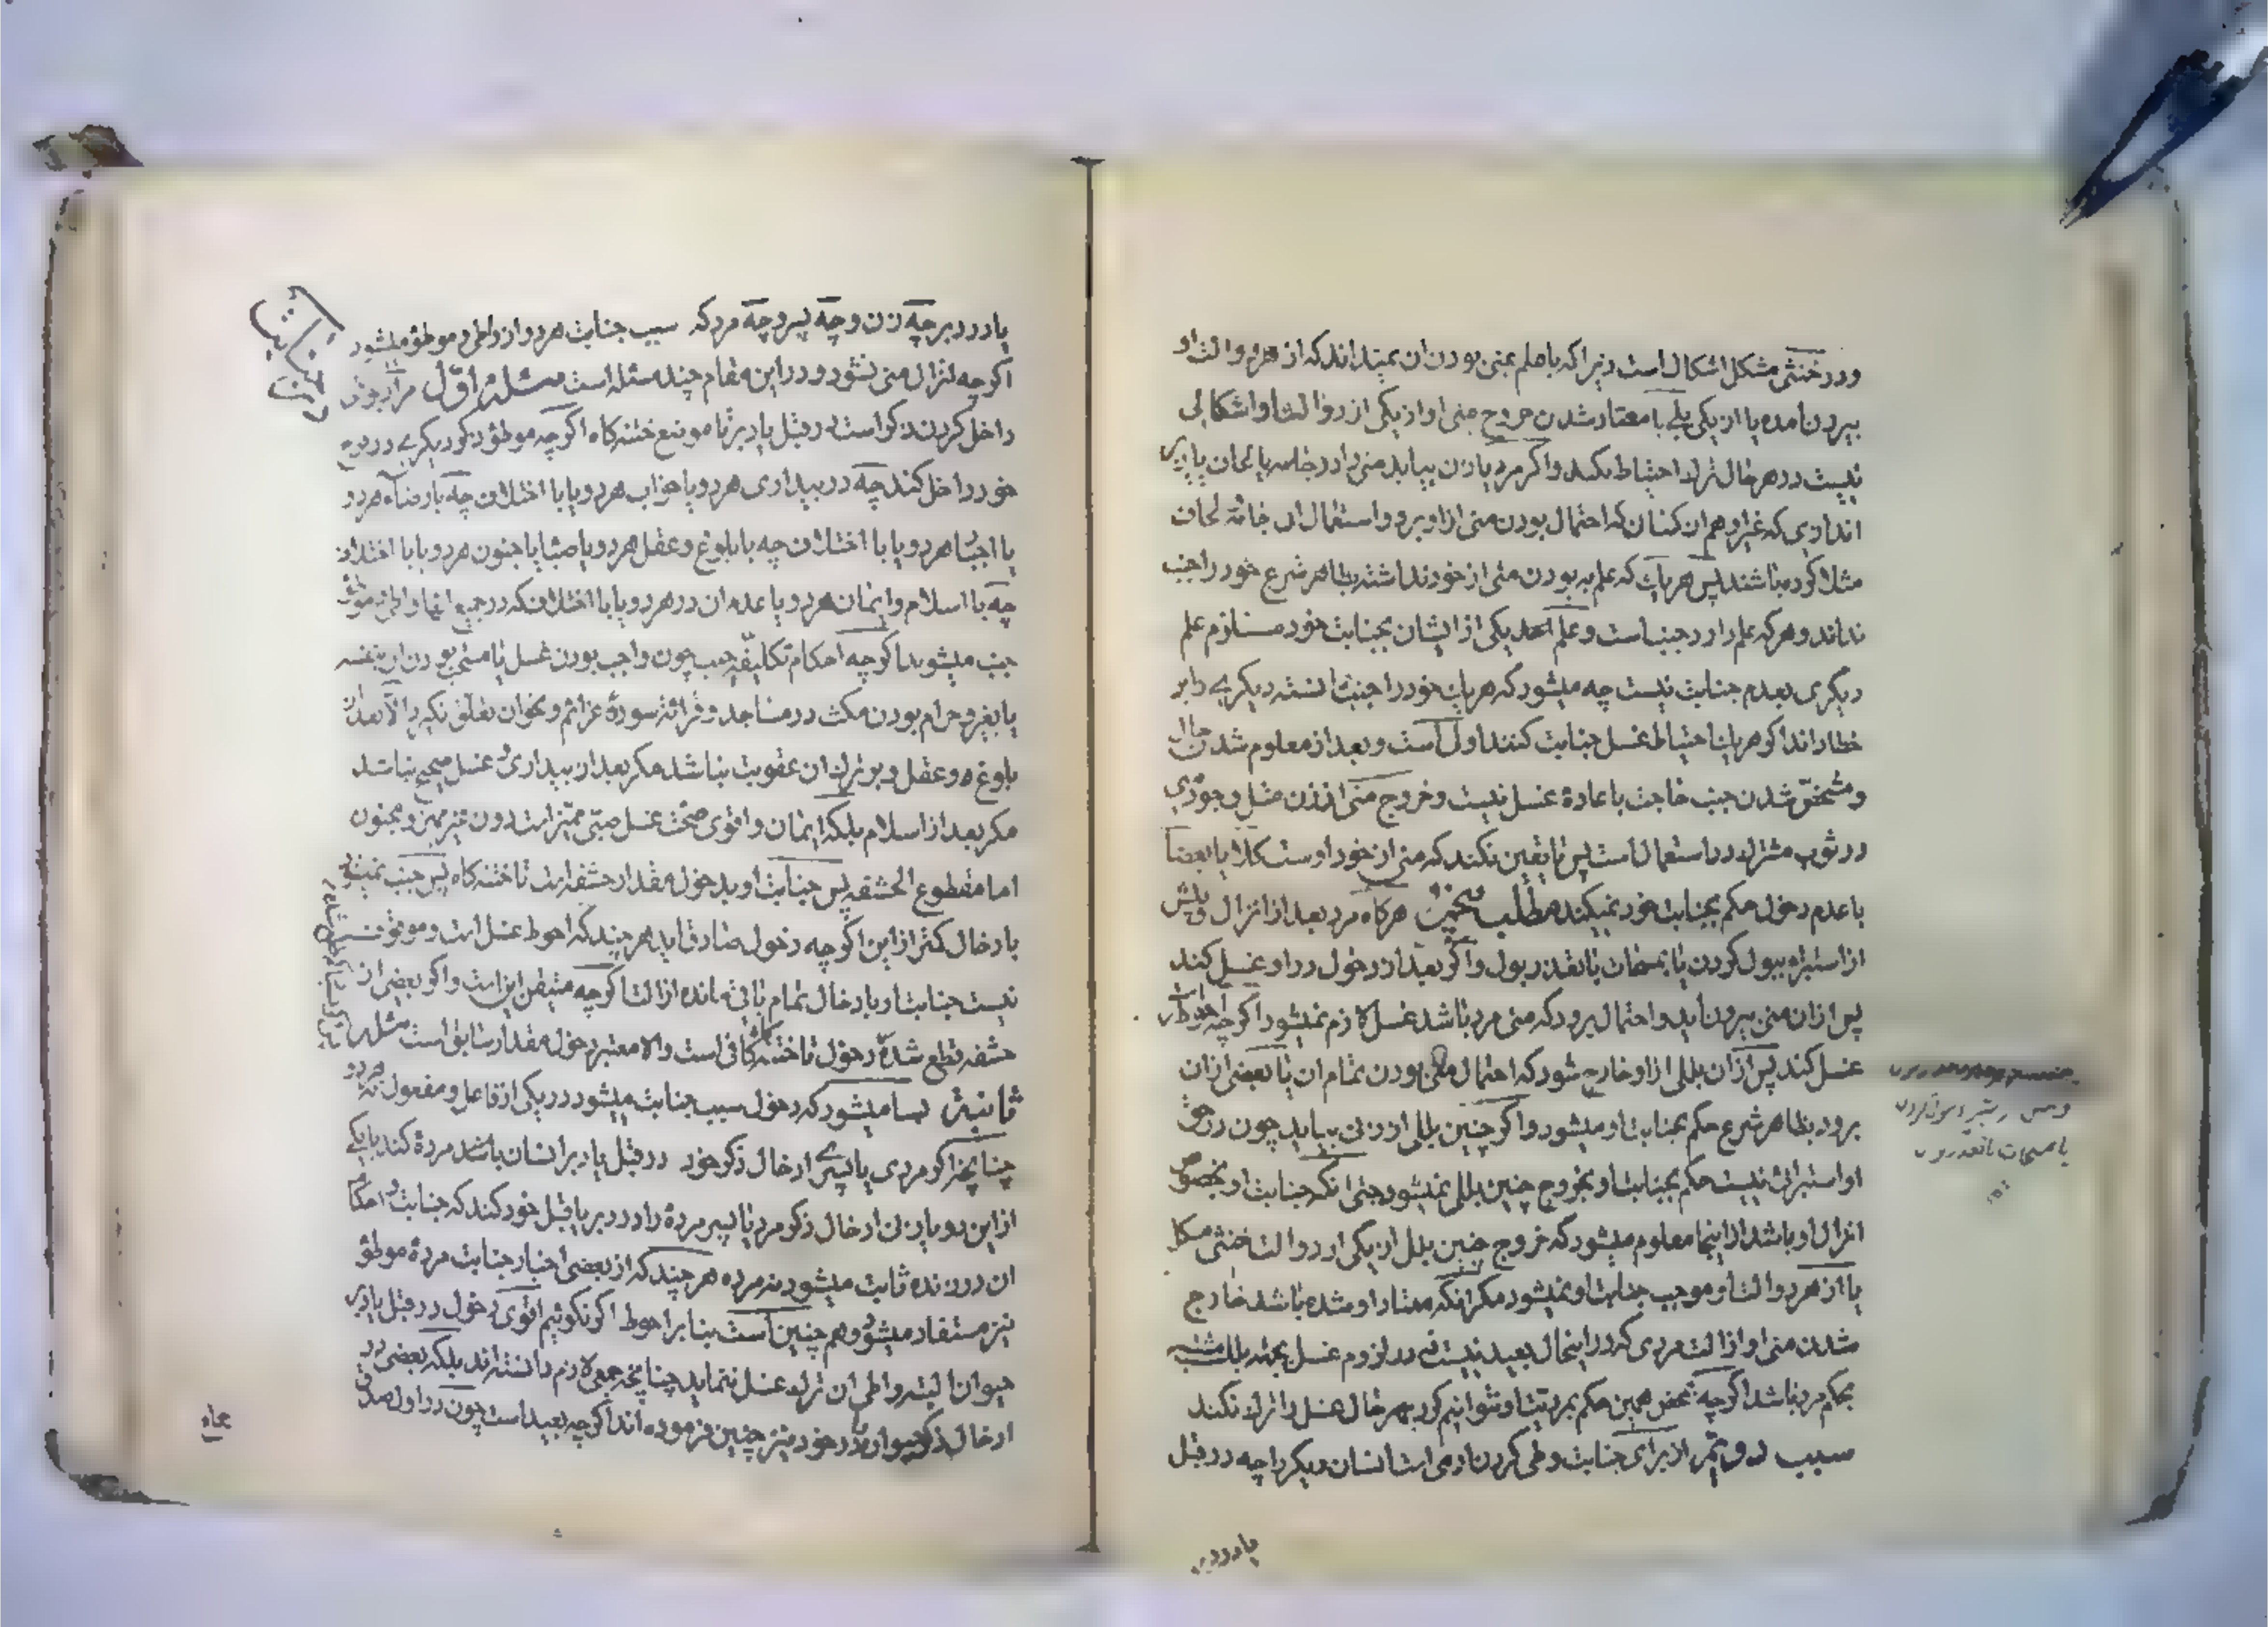 ودر خنثی مشکل اشکال است زیرا که با علم بمنی بودن ان نمیداند که از هردو الت او
بیرون امده یا از یکی بلی با معتاد شدن خروج منی او از یکی از دو الت او اشکالی
نیست در هر حال ترک احتیاط نکند و اگر مرد یا زن بیابد منی را در جامه یا لحاف یا
اندازی که غیر او هم ان کسان که احتمال بودن منی از او برود استعمال ان جامه لحاف
مثلا کرده باشند پس هر یک که علم به بودن منی از خود نداشته بظاهر شرع خود را جنب
نداند و هر که علم دارد جنب است و علم احد یکی از ایشان بجنابت خود مستلزم علم
دیگری بعدم جنابت نیست چه میشود که هر یک خود را جنب دانسته دیگری را بر
خطا داند اگر هر یک احتیاط غسل جنابت کنند اولی است و بعد از معلوم شدن حال
و مشخص شدن جنب حاجت باعاده غسل نیست و خروج منی از زن مثل وجود
در ثوب مشترک در استعمال است پس تا یقین نکند که منی از خود اوست کلا یا بعضا
با عدم دخول حکم بجنابت خود نمیکند مطلب پنجم هرگاه مرد بعد از انزال و پیش
از استبرا ببول کردن یا بمسحات با تعذر بول و اگر بعد از دخول در او غسل کند
پس از ان منی بیرون اید و احتمال برود که منی مرد باشد غسل لازم نمیشود اگرچه احوط
غسل کند پس از ان بللی از او خارج شود که احتمال منی بودن تمام ان یا بعضی از ان
برود بظاهر شرع حکم بجنابت او میشود و اگر چنین بللی از زنی بیاید چون در حق
او استبرائی نیست حکم بجنابت او بخروج چنین بللی نمیشود حتی انکه جنابت او بخصوص
انزال او باشد از اینجا معلوم میشود که خروج چنین بلل از یکی از دو الت خنثی مشکل
یا از هر دو الت او موجب جنابت او نمیشود مگر انکه معتاد او شده باشد خارج
شدن منی او از الت مردی که در اینحال بعید نیست که در لزوم غسل بجهة بلل مشتبه
بحکم مرد باشد اگرچه بمحض همین حکم بمردیت او نتوانیم کرد بهر حال غسل را ترک نکند
سبب دویم از برای جنابت وطی کردن ادمی است انسان دیگر را چه در قبل
یا در دبر
یا در دبر چه زن و چه پسر و چه مرد که سبب جنابت هر دو از واطی و موطؤ میشود
اگرچه انزال منی نشود و در این مقام چند مسئله است مسئله اول مراد بوطی
داخل کردن ذکر است در قبل یا دبر تا موضع ختنه کاه اگرچه موطؤ ذکر دیگری در فرج
خود داخل کند چه در بیداری هر دو یا خواب هر دو یا با اختلاف چه با رضاء هر دو
یا اجبار هر دو یا با اختلاف چه با بلوغ و عقل هر دو یا صبا یا جنون هر دو یا با اختلاف
چه با اسلام و ایمان هر دو یا عدم ان در هر دو یا با اختلاف که در جمیع اینها واطی و موطؤ
جنب میشوند اگرچه احکام تکلیفیه جنب چون واجب بودن غسل یا مستحب بودن ان بنفسه
یا بغیر و حرام بودن مکث در مساجد و قرائة سورۀ عزائم و نحو ان تعلق نگیرد الا بعد از
بلوغ و عقل و بر ترک ان عقوبت نباشد مگر بعد از بیداری و غسل صحیح نباشد
مگر بعد از اسلام بلکه ایمان و اقوی صحت غسل صبی ممیز است دون غیر ممیز و مجنون
اما مقطوع الحشفه پس جنابت او بدخول مقدار حشفه است تا ختنه کاه پس جنب نمیشود
بادخال کمتر از این اگرچه دخول صادق اید هر چند که احوط غسل است و موقوف
نیست جنابت او بادخال تمام باقی مانده از الت اگرچه متیقن این است و اگر بعضی از
حشفه قطع شده دخول تا ختنه کاه کافی است والا معتبر دخول مقدار سابق است مسئله
ثانیة بسا میشود که دخول سبب جنابت میشود در یکی از فاعل و مفعول نه هر دو
چنانچه اگر مردی یا پسری ادخال ذکر خود در قبل یا دبر انسان باشد مرده کند یا یکی
از این دو یا زنی ادخال ذکر مرد یا پسر مردۀ را در دبر یا قبل خود کند که جنابت و احکام
ان در زنده ثابت میشود نه مرده هر چند که از بعضی اخبار جنابت مردۀ موطؤ
نیز مستفاد میشود و هم چنین است بنا بر احوط اگر نگوئیم اقوی دخول در قبل یا دبر
حیوان البته واطی ان ترک غسل ننماید چنانچه جمعی لازم دانسته اند بلکه بعضی در
ادخال ذکر حیوان در خود نیز چنین فرموده اند اگرچه بعید است چون در اول صدق